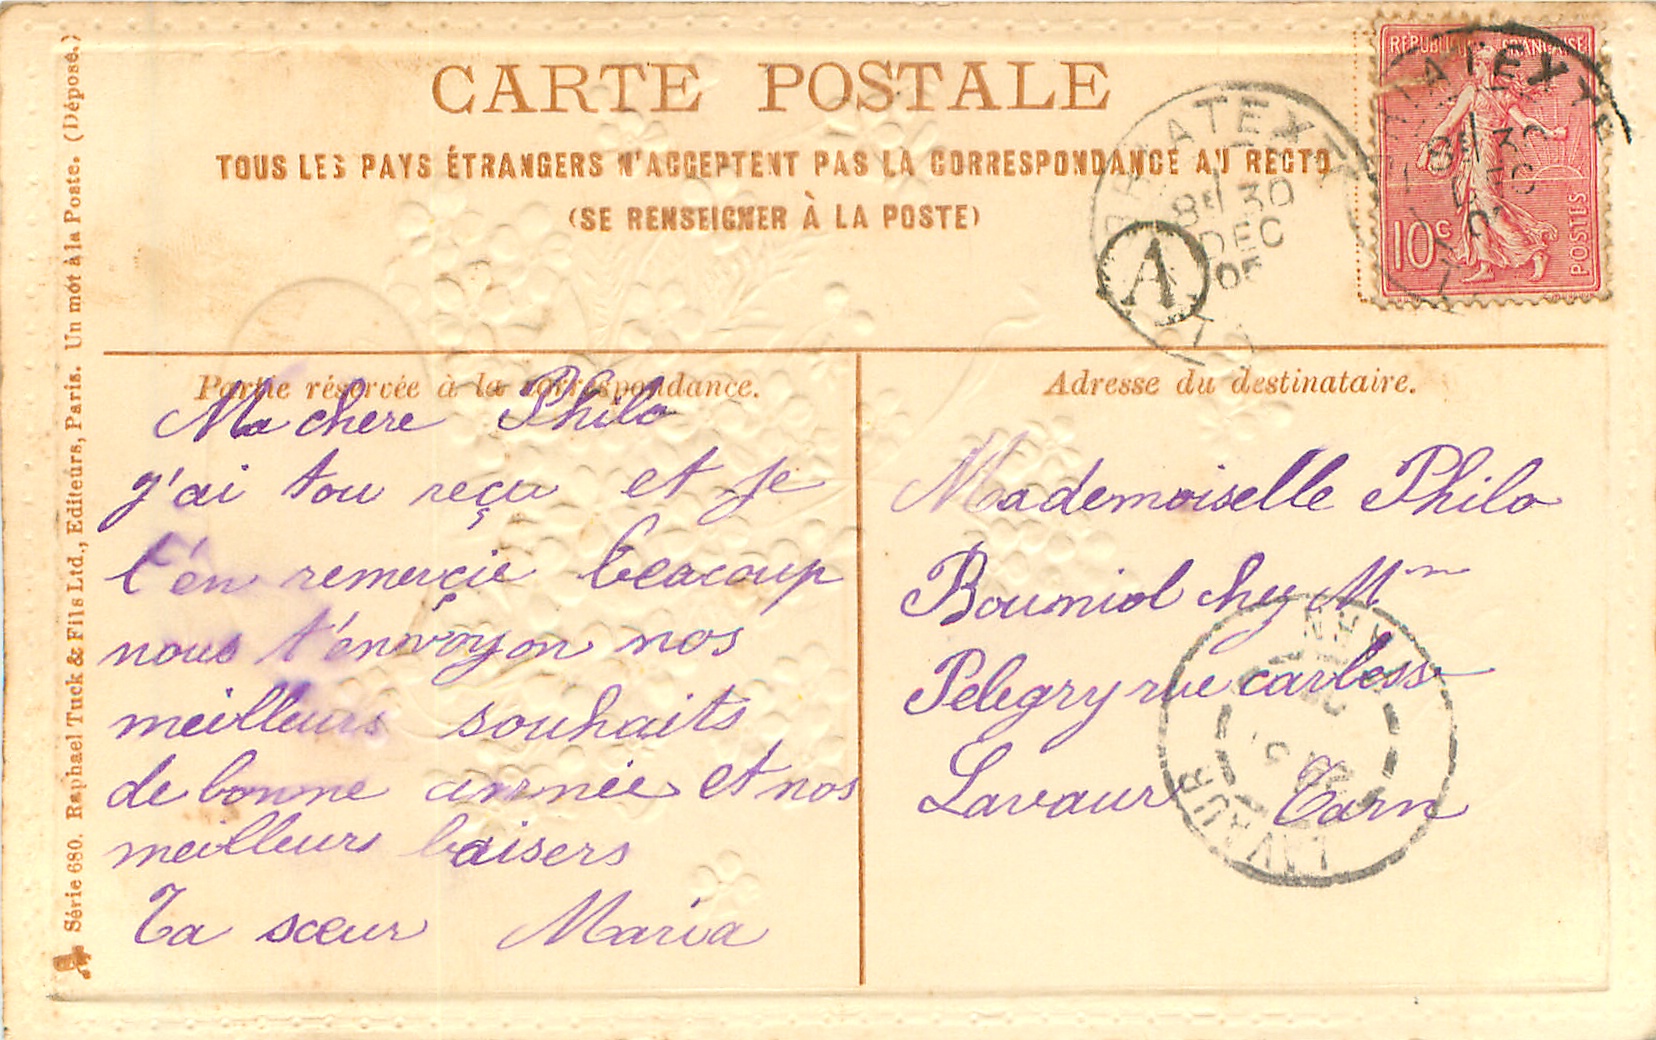 CARTE POSTALE
TOUS LES PAYS ÉTRANGERS N'ACCEPTENT PAS LA CORRESPONDANCE AU RECTO
(SE RENSEIGNER À LA POSTE)
REPUBLIQUE FRANÇAISE
10c
POSTES
8E 30
DEC
05
A
Série 680. Raphael Tuck & Fils Ltd., Editeurs, Paris. Un mot à la Poste. (Déposé.)
Partie réservée à la correspondance.
Ma chere Philo
j'ai tou reçu et je
t'én remerçie beacoup
nous t'énvoyon nos
meilleurs souhaits
de bonne année et nos
meilleurs baisers
Ta sœur Maria
Adresse du destinataire.
Mademoiselle Philo
Boumiol chez Mm
Pelegry rue carless
Lavaur Tarn
LAVAUR
TARN